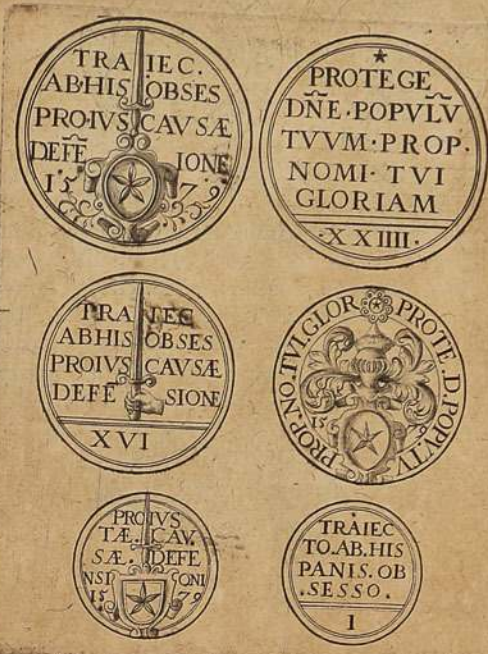 TRA IEC.
AB·HIS OBSES
PRO·IVS CAVSÆ
DEFE̅ IONE
1 5 7 ·
★
PROTEGE
DN̅E·POPVLV̅
TVVM·PROP·
NOMI·TVI
GLORIAM
·XXIIII·
TRA IEC
ABHIS OBSES
PROIVS CAVSÆ
DEFE̅ SIONE
XVI
PROTE·D·POPVTV
PROP·NO·TVI·GLOR
15 79
PROIVS
TÆ. CAV.
SÆ. DEFE
NSI ONI
15 79
TRAIEC
TO.AB.HIS
PANIS.OB
.SESSO.
I